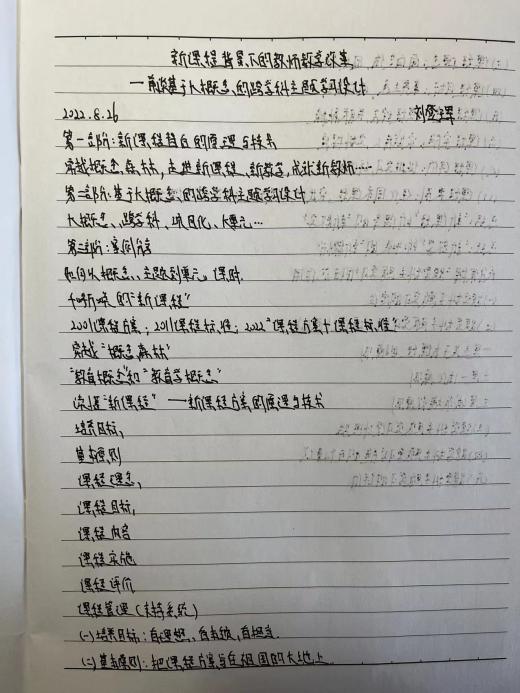 新课程背景下的教师教学改革
——兼谈基于大概念的跨学科主题学习设计
2022.8.26 刘登珲
第一部阶:新课程背后的原理与技术
穿越概念森林,走进新课程、新教学,成就新教师……
第二部阶:基于大概念的跨学科主题学习设计
大概念、跨学科、项目化、大单元…
第三部阶:案例分享
如何从概念、主题到单元、课时
了解 的“新课程”
2001课程方案;2011课程标准;2022“课程方案+课程标准”
穿越“概念森林”
“教育概念”和“教育学概念”
读懂“新课程”——新课程方案的原理与技术
培养目标,
基本原则
课程理念,
课程目标,
课程内容
课程实施
课程评价
课程管理(支持系统)
(一)培养目标:有理想、有本领、有担当.
(二)基本原则:把课程方案写在祖国的大地上